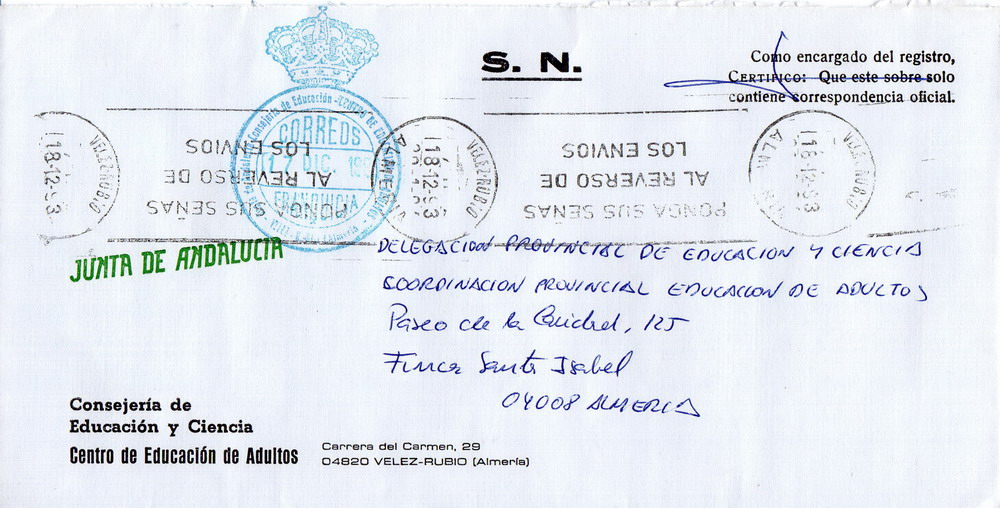 S. N.
Como encargado del registro,
CERTIFICO: Que este sobre solo
contiene correspondencia oficial.
Consejería de Educación - CENTRO DE
CORREOS
17 DIC. 199
FRANQUICIA
VELEZ-RUBIO
18-12-93
PONGA SUS SEÑAS
AL REVERSO DE
LOS ENVIOS
VELEZ-RUBIO
18-12-93
ALMERIA
PONGA SUS SEÑAS
AL REVERSO DE
LOS ENVIOS
VELEZ-RUBIO
18-12-93
JUNTA DE ANDALUCIA
DELEGACION PROVINCIAL DE EDUCACION Y CIENCIA
COORDINACION PROVINCIAL EDUCACION DE ADULTOS
Paseo de la Caridad, 125
Finca Santa Isabel
04008 ALMERIA
Consejería de
Educación y Ciencia
Centro de Educación de Adultos
Carrera del Carmen, 29
04820 VELEZ-RUBIO (Almería)